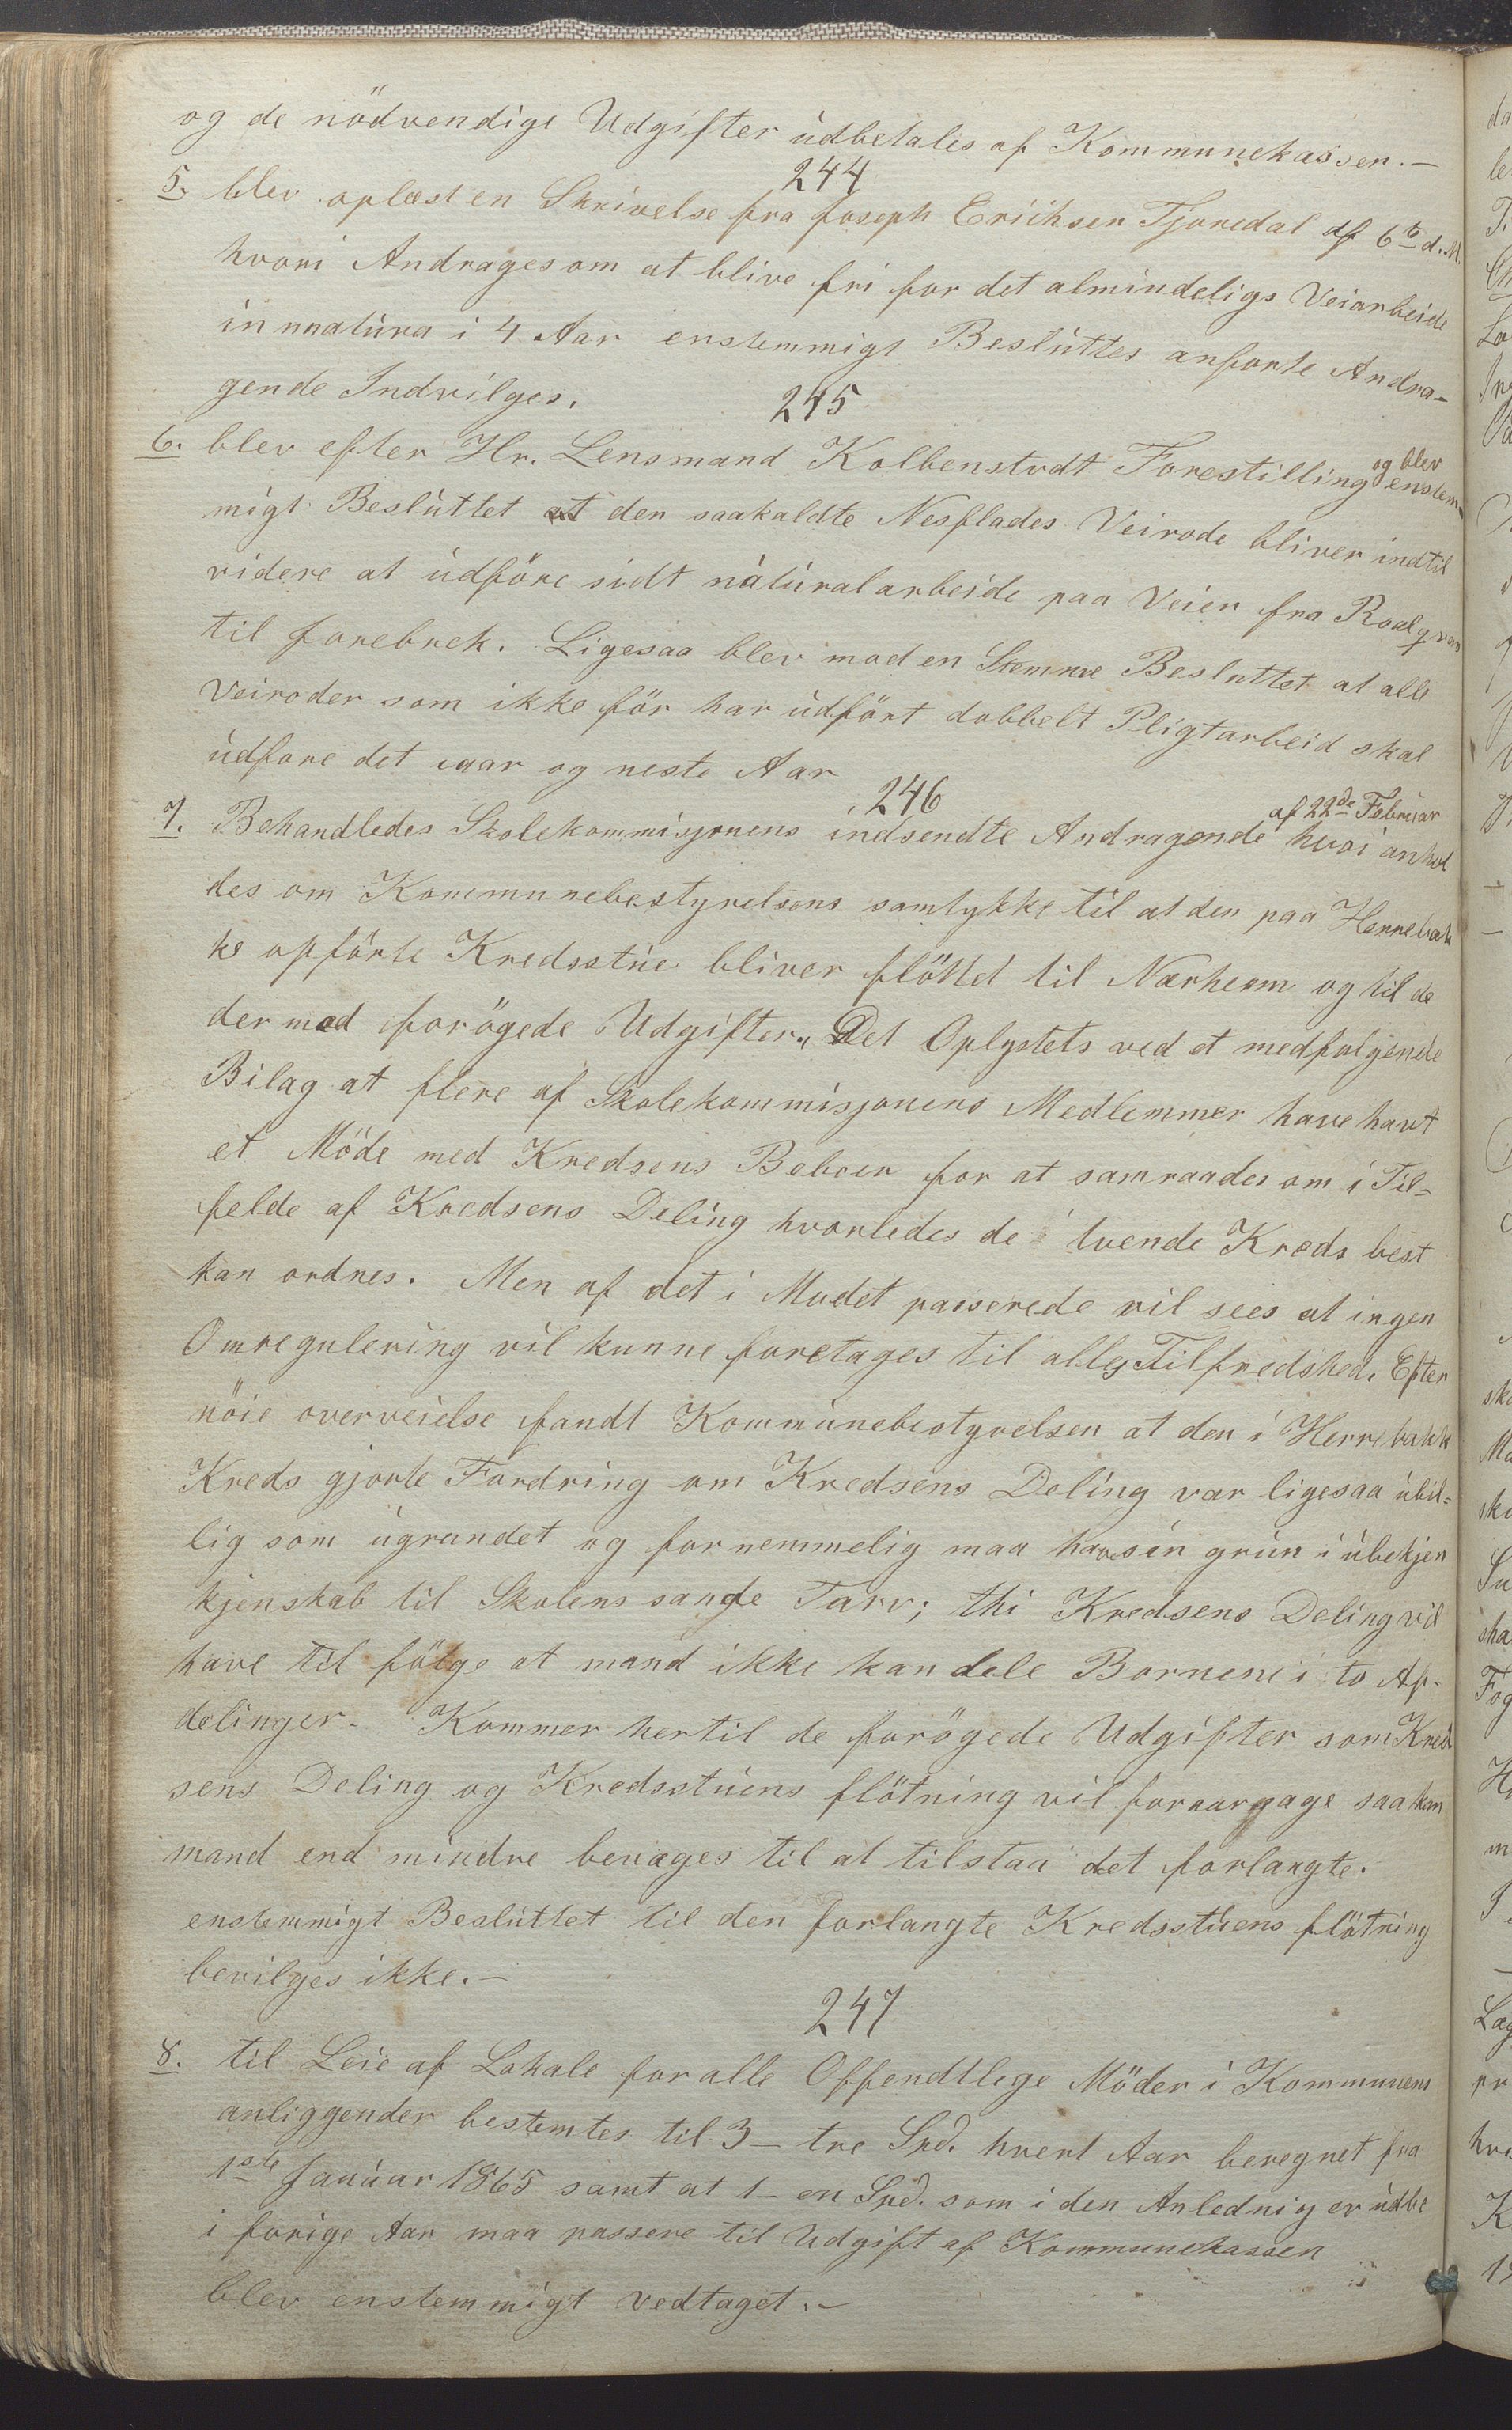 og de nödvendige Udgifter udbetales af Kommunekassen.—
244
5. blev oplæst en Skrivelse fra Joseph Erichsen Tjoredal af 6te d. M.
hvori Andrages om at blive fri for det almindeligs Veiarbeide
in nnatura i 4 Aar enstemmigt Besluttes anforte Andra-
gende Indvilges.
245
6. blev efter Hr. Lensmand Kolbenstvdt Forestilling og blev enstem-
migt Besluttet at den saakaldte Nesflades Veirode bliver indtil
videre at udföre sidt naturalarbeide paa Veien fra
til forebrek. Ligesaa blev mod en Stemme Besluttet at alle
Veiroder som ikke för har udfört dobbelt Pligtarbeid skal
udfore det iaar og neste Aar
246
7. Behandledes Skolekommisjonens indsendte Andragende af 22de Februar hvori anhol
des om Kommunebestyrelsens samtykke til at den paa Herrebak
ke opförte Kredsstue bliver flötted til Nærheim og til de
der med forögede Udgifter. Det Oplystets ved et medfolgende
Bilag at flere af Skolekommisjonens Medlemmer have havt
et Möde med Kredsens Beboer for at samraades om i Til=
felde af Kredsens Deling hvorledes de tvende Kreds best
kan ordnes. Men af det i Mødet passerede vil sees at ingen
Omregulering vil kunne foretages til alles Tilfredshed. Efter
nöie overveielse fandt Kommunebestyrelsen at den i Herrebakk
Kreds gjorte Fordring om Kredsens Deling var ligesaa ubil=
lig som ugrundet og fornemmelig maa have sin grun i ubekjen
kjenskab til Skolens sande Tarv; thi Kredsens Deling vil
have til fölge at mand ikke kan dele Bornene i to Af-
delinger. Kommer hertil de forögede Udgifter som Kred
sens Deling og Kredsstuens flötning vil foraarsage saa kan
mand end mindre bevæges til at tilstaa det forlangte.
enstemmigt Besluttet til den forlangte Kredsstuens flötning
bevilges ikke.—
247
8. til Leie af Lokale for alle Offendtlege Möder i Kommunens
anliggender bestemtes til 3 – tre Spd. hvert Aar beregnet fra
1ste Januar 1865 samt at 1 – en Spd. som i den Anlednig er udbe
i forige Aar maa passere til Udgift af Kommunekassen
blev enstemmigt vedtaget.—